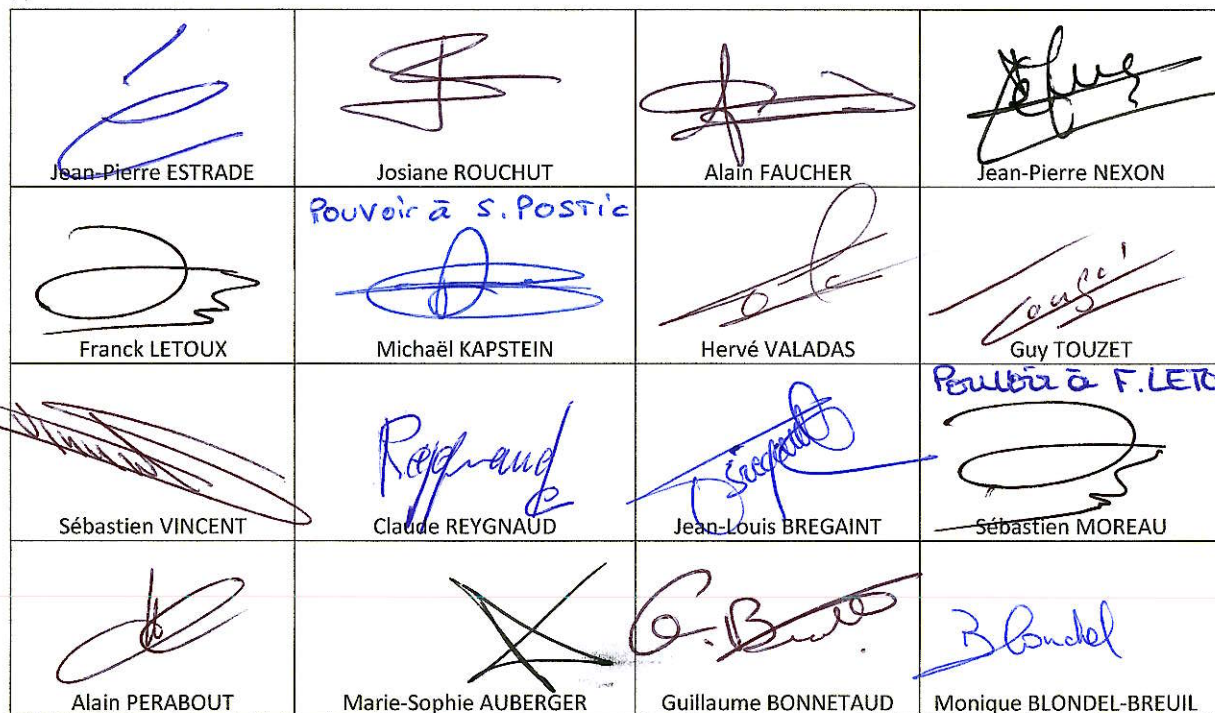 Jean-Pierre ESTRADE
Josiane ROUCHUT
Alain FAUCHER
Jean-Pierre NEXON
Pouvoir à S. POSTIC
Franck LETOUX
Michaël KAPSTEIN
Hervé VALADAS
Guy TOUZET
Pouvoir à F. LETO
Sébastien VINCENT
Reygnaud
Claude REYGNAUD
Jean-Louis BREGAINT
Sébastien MOREAU
Alain PERABOUT
Marie-Sophie AUBERGER
Guillaume BONNETAUD
Blondel
Monique BLONDEL-BREUIL